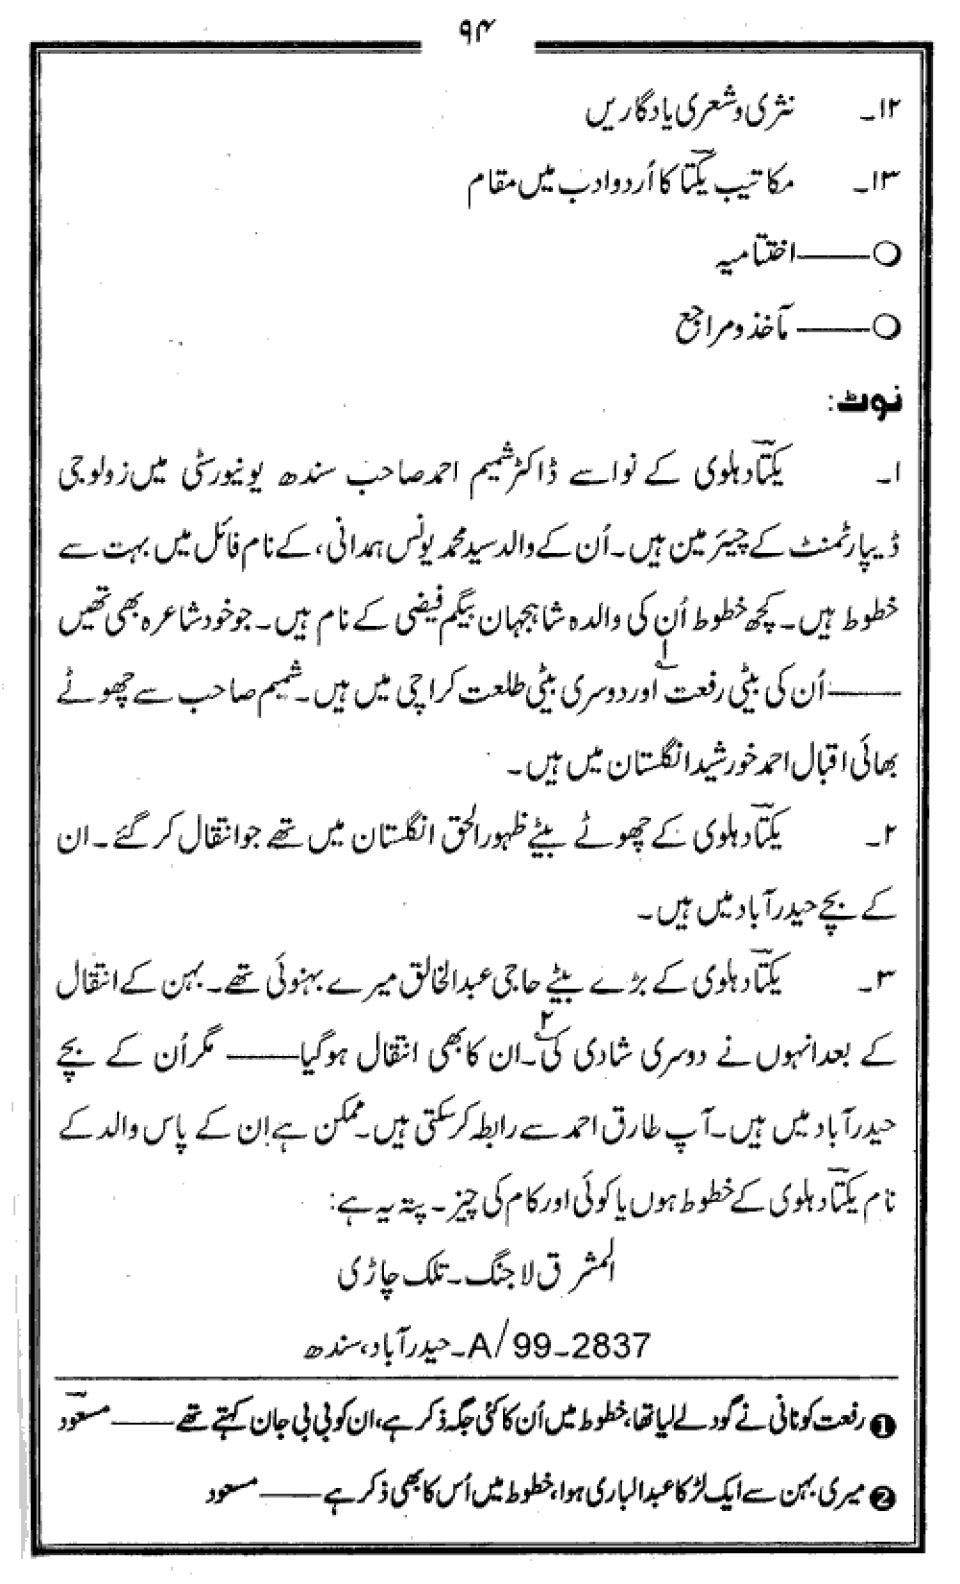 ۹۴
۱۲۔ نثری و شعری یادگاریں
۱۳۔ مکاتیب یکتاؔ کا اُردو ادب میں مقام
○——اختتامیہ
○——مآخذ و مراجع
نوٹ:
۱۔ یکتاؔ دہلوی کے نواسے ڈاکٹر شمیم احمد صاحب سندھ یونیورسٹی میں زولوجی
ڈیپارٹمنٹ کے چیئرمین ہیں۔ اُن کے والد سید محمد یونس ہمدانی، کے نام فائل میں بہت سے
خطوط ہیں۔ کچھ خطوط اُن کی والدہ شاہجہان بیگم فیضی کے نام ہیں۔ جو خود شاعرہ بھی تھیں
——اُن کی بیٹی رفعت۱ اور دوسری بیٹی طلعت کراچی میں ہیں۔ شمیم صاحب سے چھوٹے
بھائی اقبال احمد خورشید انگلستان میں ہیں۔
۲۔ یکتاؔ دہلوی کے چھوٹے بیٹے ظہورالحق انگلستان میں تھے جو انتقال کر گئے۔ ان
کے بچے حیدرآباد میں ہیں۔
۳۔ یکتاؔ دہلوی کے بڑے بیٹے حاجی عبدالخالق میرے بہنوئی تھے۔ بہن کے انتقال
کے بعد انہوں نے دوسری شادی کی۲۔ ان کا بھی انتقال ہوگیا—— مگر اُن کے بچے
حیدرآباد میں ہیں۔ آپ طارق احمد سے رابطہ کرسکتی ہیں۔ ممکن ہے اِن کے پاس والد کے
نام یکتاؔ دہلوی کے خطوط ہوں یا کوئی اور کام کی چیز۔ پتہ یہ ہے:
المشرق لاجنگ۔ تلک چاڑی
2837۔99/A۔ حیدرآباد، سندھ
❶ رفعت کو نانی نے گود لے لیا تھا، خطوط میں اُن کا کئی جگہ ذکر ہے، ان کو بی بی جان کہتے تھے —— مسعودؔ
❷ میری بہن سے ایک لڑکا عبدالباری ہوا، خطوط میں اُس کا بھی ذکر ہے —— مسعود